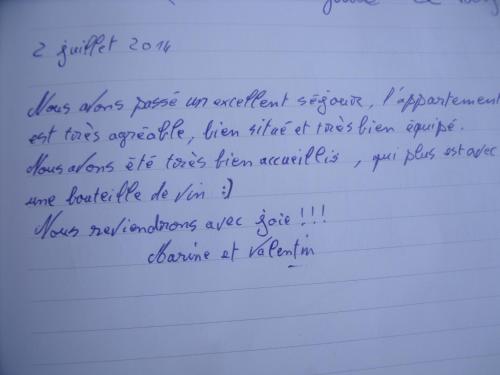 2 juillet 2014
Nous avons passé un excellent séjour, l'appartement
est très agréable, bien situé et très bien équipé.
Nous avons été très bien accueillis, qui plus est avec
une bouteille de vin :)
Nous reviendrons avec joie !!!
Marine et Valentin